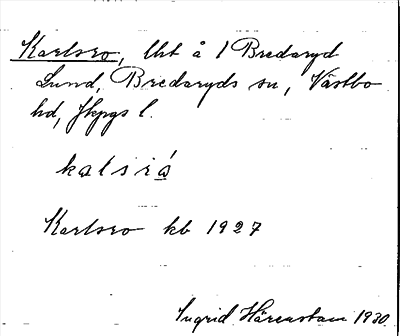 Karlsro, lht å 1 Bredaryd
Lund, Bredaryds sn, Västbo
hd, Jkpgs l.
kalsró
Karlsro kb 1927
Ingrid Härenstam 1930